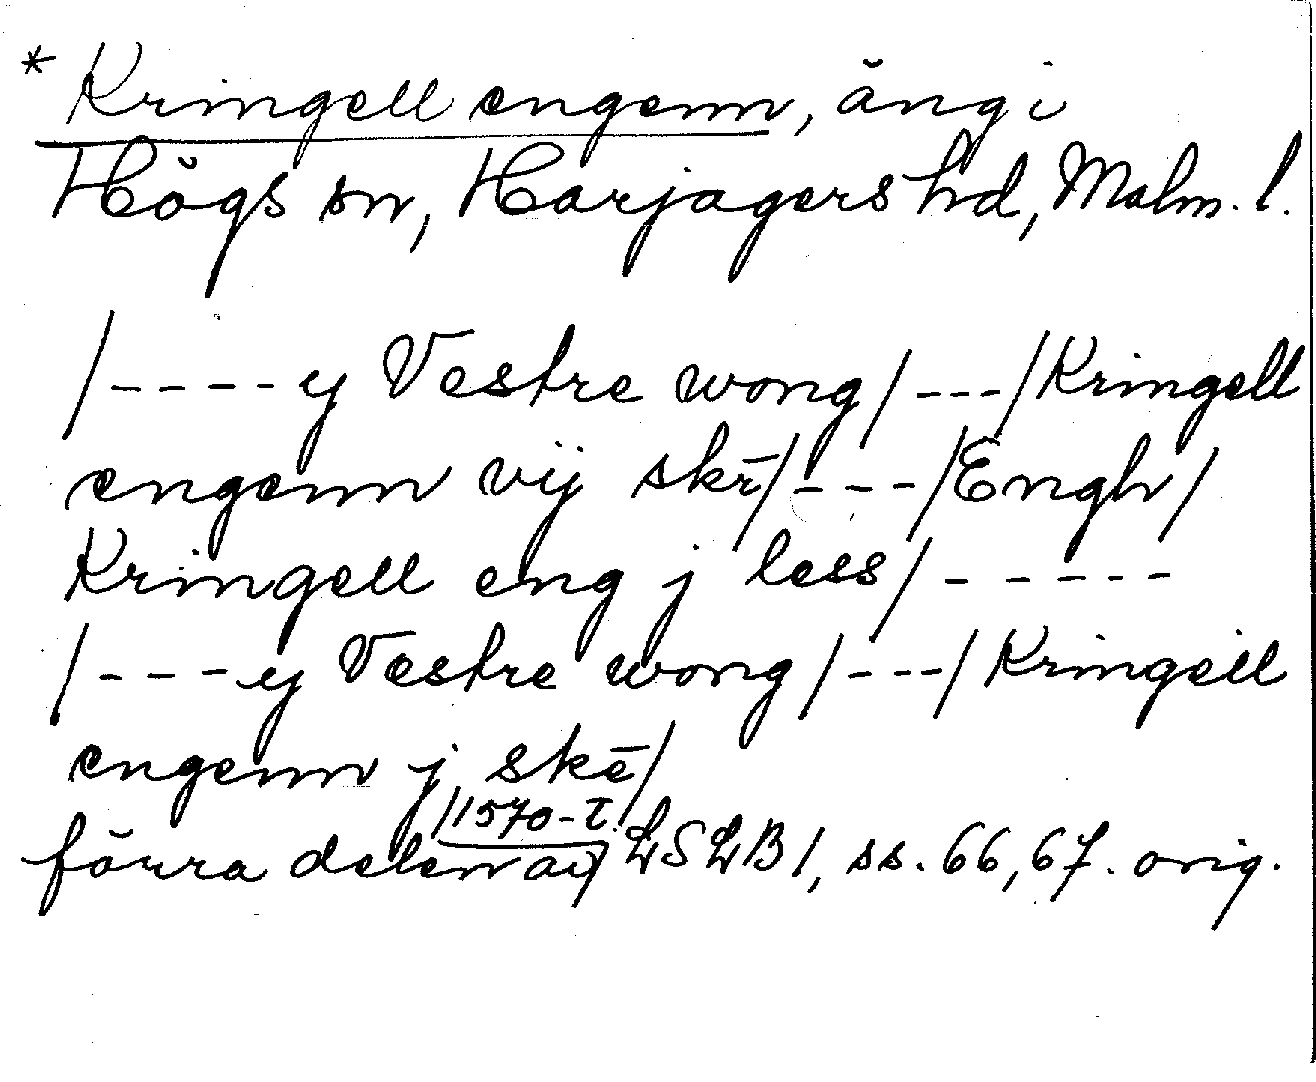 * Kringell engenn, äng i
Högs sn, Harjagers hd, Malm. l.
/----y Vestre wong/---/Kringell
engenn vij skr̄/---/Engh/
Kringell eng j less/-----
/---y Vestre wong/---/Kringell
engenn j skē/
/1570-t./
förra delen av LSLB 1, ss. 66, 67. orig.